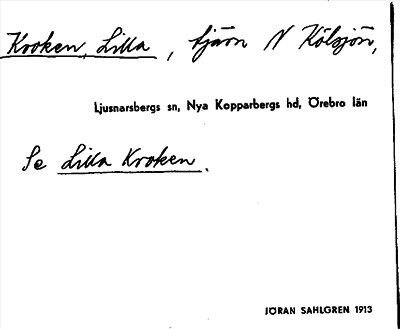 Kroken, Lilla, tjärn N Kölsjön,
Ljusnarsbergs sn, Nya Kopparbergs hd, Örebro län
Se Lilla Kroken.
JÖRAN SAHLGREN 1913